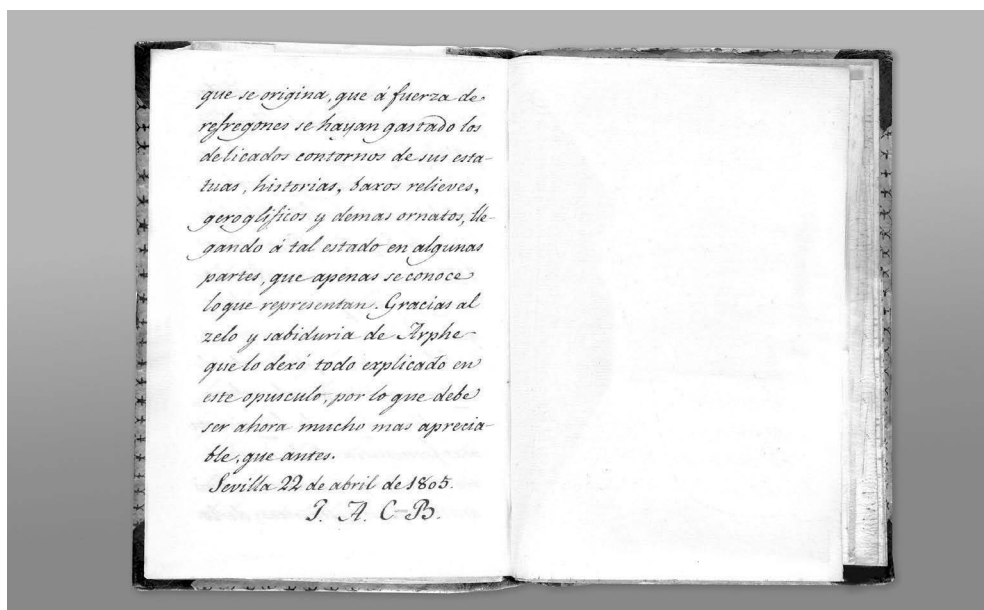 que se origina, que á fuerza de
refregones se hayan gastado los
delicados contornos de sus esta-
tuas, historias, baxos relieves,
geroglificos y demas ornatos, lle-
gando á tal estado en algunas
partes, que apenas se conoce
lo que representan. Gracias al
zelo y sabiduria de Arphe
que lo dexó todo explicado en
este opusculo, por lo que debe
ser ahora mucho mas aprecia-
ble, que antes.
Sevilla 22 de abril de 1805.
J. A. C-B.